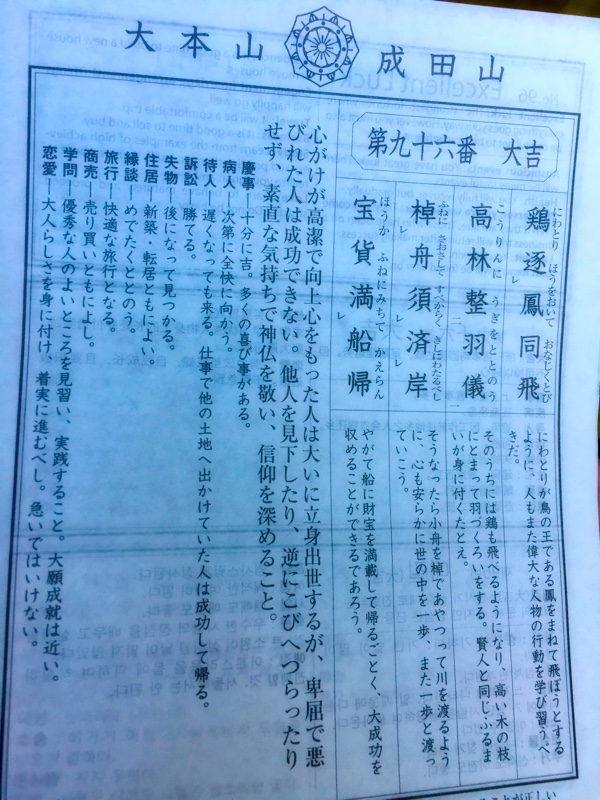 大本山 成田山
第九十六番 大吉
にわとり ほうをおいて おなじくとび
鶏逐鳳同飛
レ
こうりんに うぎをととのう
高林整羽儀
二 一
ふねに さおさして すべからく きしにわたるべし
棹舟須済岸
レ レ
ほうか ふねにみちて かえらん
宝貨満船帰
レ
にわとりが鳥の王である鳳をまねて飛ぼうとする
ように、人もまた偉大な人物の行動を学び習うべ
きだ。
そのうちには鶏も飛べるようになり、高い木の枝
にとまって羽づくろいをする。賢人と同じふるま
いが身に付くたとえ。
そうなったら小舟を棹であやつって川を渡るよう
に、心も安らかに世の中を一歩、また一歩と渡っ
ていこう。
やがて船に財宝を満載して帰るごとく、大成功を
収めることができるであろう。
心がけが高潔で向上心をもった人は大いに立身出世するが、卑屈で悪
びれた人は成功できない。他人を見下したり、逆にこびへつらったり
せず、素直な気持ちで神仏を敬い、信仰を深めること。
慶事━十分に吉。多くの喜び事がある。
病人━次第に全快に向かう。
待人━遅くなっても来る。仕事で他の土地へ出かけていた人は成功して帰る。
訴訟━勝てる。
失物━後になって見つかる。
住居━新築・転居ともによい。
縁談━めでたくととのう。
旅行━快適な旅行となる。
商売━売り買いともによし。
学問━優秀な人のよいところを見習い、実践すること。大願成就は近い。
恋愛━大人らしさを身に付け、着実に進むべし。急いではいけない。
No. 96
Excellent Luck
ことが正しい